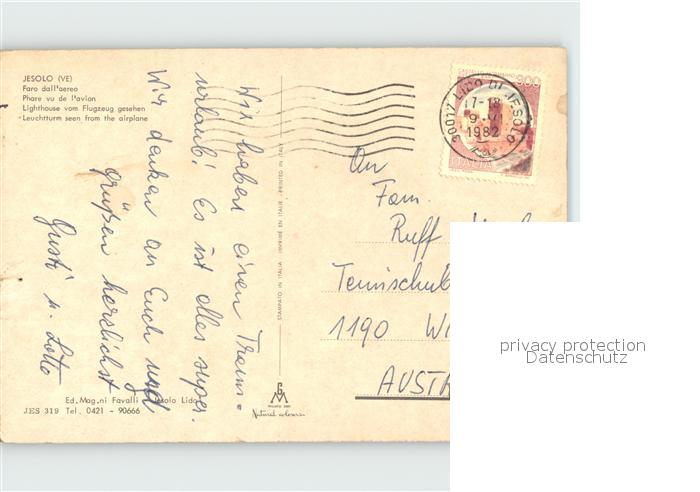 JESOLO (VE)
Faro dall'aereo
Phare vu de l'avion
Lighthouse vom Flugzeug gesehen
Leuchtturm seen from the airplane
Wir haben einen Traum=
urlaub! Es ist alles super.
Wir denken an Euch und
grüßen herzlichst
Gusti u. Lotte
Ed. Mag.ni Favalli - Jesolo Lido
JES 319 Tel. 0421 - 90666
STAMPATO IN ITALIA - IMPRIMÉ EN ITALIE - PRINTED IN ITALY
Natural colours
300
ITALIA
30017 LIDO DI JESOLO
17-18
9
1982
An
Fam.
Ruff
Tennisclub
1190 Wi
AUSTR
privacy protection
Datenschutz